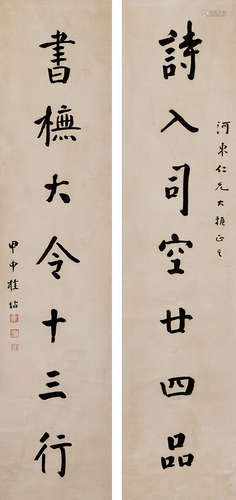 詩入司空廿四品
河東仁兄大雅正之
書橅大令十三行
甲申